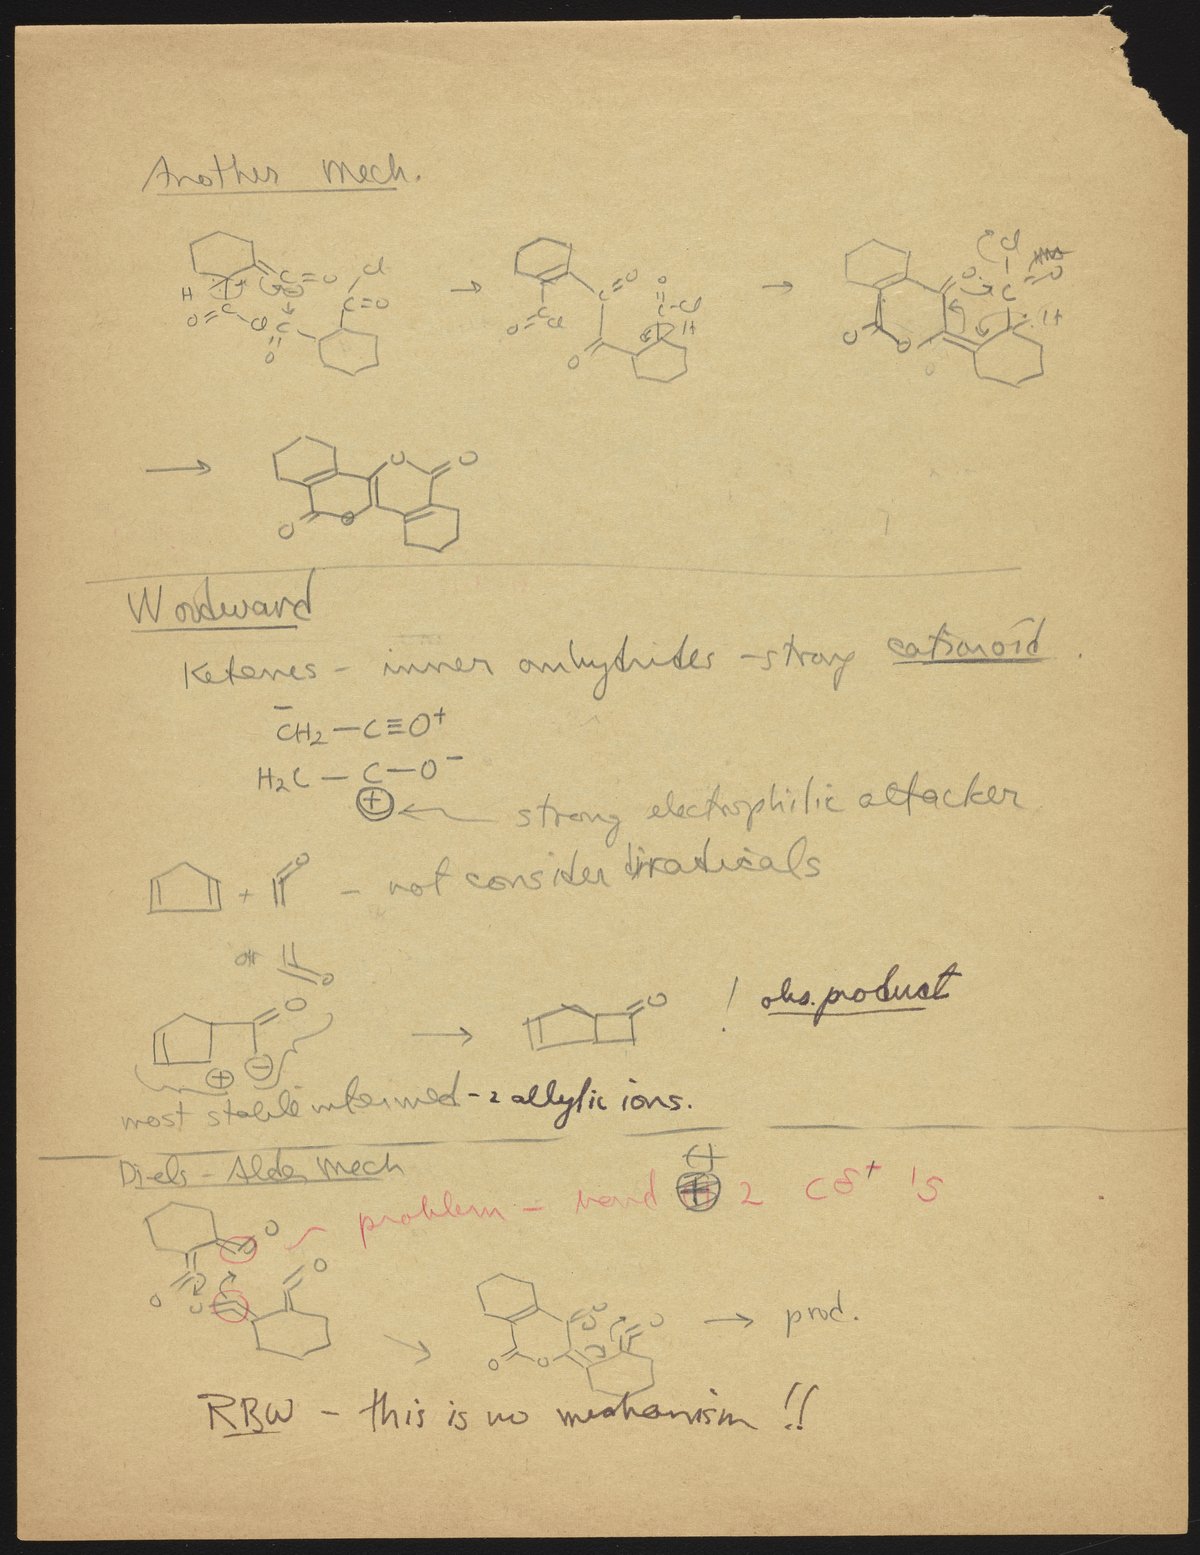 Another Mech.
Cl
H C=O C=O
O=C Cl C
O
O
C=O C-Cl
O=C Cl H
O
Cl
O O
C
H
O O
→
O O
O O
Woodward
Ketenes - inner anhydrides - strong cationoid.
‾CH2—C≡O+
H2C—C—O−
+ ← strong electrophilic attacker
+ O - not consider diradicals
or O
O → O ! obs. product
+ −
most stable intermed - 2 allylic ions.
Diels-Alder Mech
problem - bend + 2 Cδ+ 's
O
O O
O
O O → prod.
O O
RBW - this is no mechanism !!